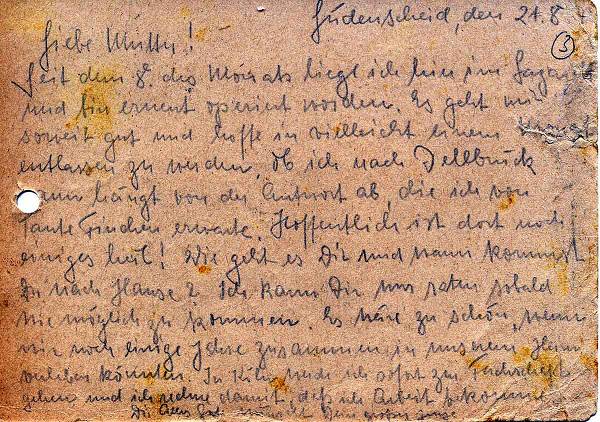 Lüdenscheid, den 21.8
③
Liebe Mutti!
Seit dem 8. des Monats liege ich hier im Lazarett
und bin erneut operiert worden. Es geht mir
soweit gut und hoffe in vielleicht einem Monat
entlassen zu werden. Ob ich nach Dellbrück
kann hängt von der Antwort ab, die ich von
Tante Finchen erwarte. Hoffentlich ist dort noch
einiges heil! Wie geht es Dir und wann kommst
Du nach Hause? Ich kann Dir nur raten sobald
wie möglich zu kommen. Es wäre zu schön, wenn
wir noch einige Jahre zusammen in unserem Heim
verleben könnten. In Köln werde ich sofort zur
gehen und ich rechne damit, daß ich Arbeit bekomme.
Dir alles Gute Dein